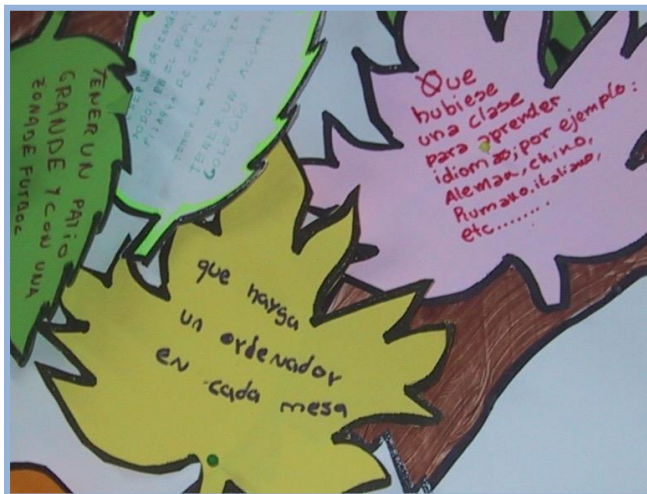 TENER UN PATIO
GRANDE Y CON UNA
ZONA DE FUTBOL
TENER UN
COLEGIO
Que
hubiese
una clase
para aprender
idiomas, por ejemplo:
Aleman, chino,
Rumano, italiano,
etc........
que hayga
un ordenador
en cada mesa